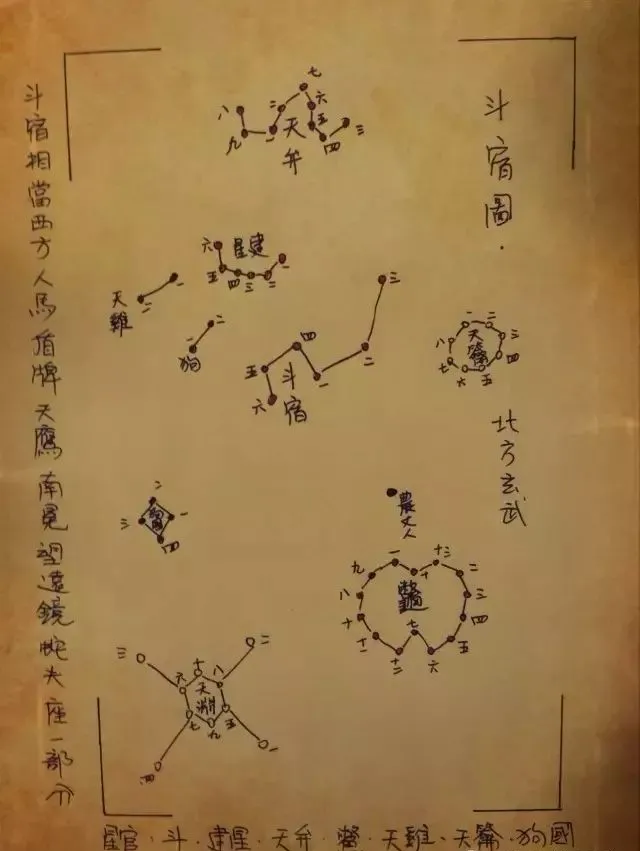 斗宿圖·
北方玄武
七
八
二
六
九
一
五
四
三
天弁
六
建星
一
五
四
三
二
天雞
一
二
狗
二
一
三
四
二
五
一
六
斗宿
一
二
八
三
七
四
六
五
天籥
二
三
一
四
農丈人
一
十三
九
十
二
八
三
十
四
七
五
十一
十二
六
鱉
三
二
十
六
八
七
五
九
四
一
天淵
斗宿相當西方人馬盾牌天鷹南冕望遠鏡蛇夫座一部分
星官·斗·建星·天弁·鱉·天雞·天籥·狗國